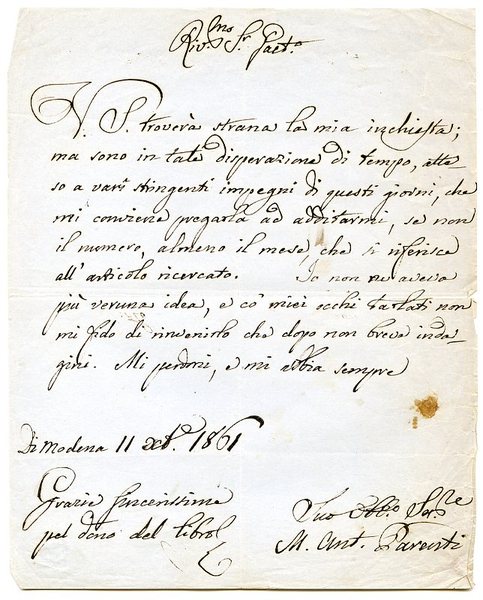 Riv.mo Sr. Gaet.o
V. S. troverà strana la mia inchiesta;
ma sono in tale disperazione di tempo, atte-
so a varj stringenti impegni di questi giorni, che
mi conviene pregarla ad additarmi, se non
il numero, almeno il mese, che si riferisce
all'articolo ricercato. Io non ne aveva
più veruna idea, e co' miei occhi tarlati non
mi fido di rinvenirlo che dopo non breve inda-
gini. Mi perdoni, e mi abbia sempre
Di Modena 11 xb.e 1861
Grazie sincerissime
pel dono del libro!
Suo Obb.o Ser.re
M. Ant. Parenti